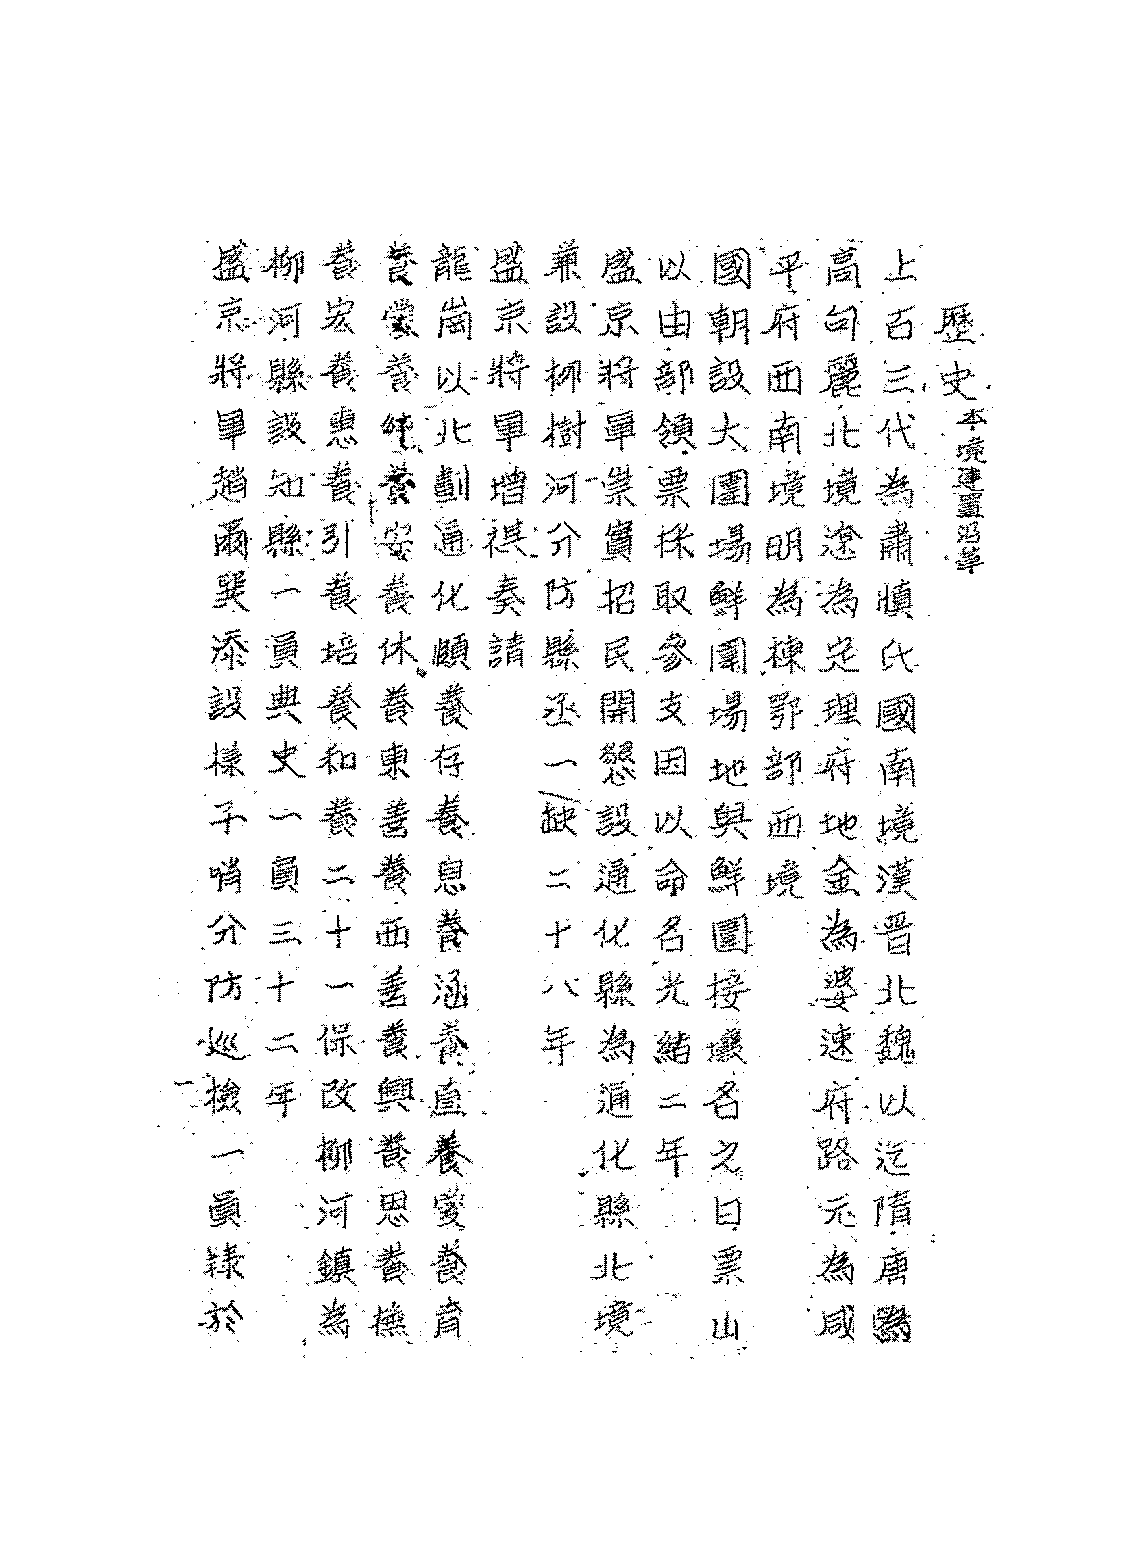 歷史本境建置沿革
上古三代為肅慎氏國南境漢晉北魏以迄隋唐為
高句麗北境遼為定理府地金為婆速府路元為咸
平府西南境明為棟鄂部西境
國朝設大圍場鮮圍場地與鮮國接壤名之曰票山
以由部領票採取參支因以命名光緒二年
盛京將軍崇實招民開懇設通化縣為通化縣北境
兼設柳樹河分防縣丞一缺二十八年
盛京將軍增祺奏請
龍崗以北劃通化頤養存養息養涵養直養愛養育
養棠養養安養休養東善養西善養興養恩養撫
養宏養惠養引養培養和養二十一保改柳河鎮為
柳河縣設知縣一員典史一員三十二年
盛京將軍趙爾巽添設樣子哨分防巡檢一員隸於